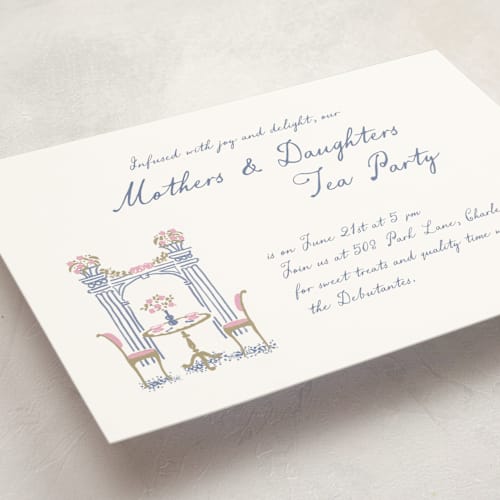 Infused with joy and delight, our
Mothers & Daughters
Tea Party
is on June 21st at 5 pm
Join us at 508 Park Lane,
for sweet treats and quality time
the Debutantes.